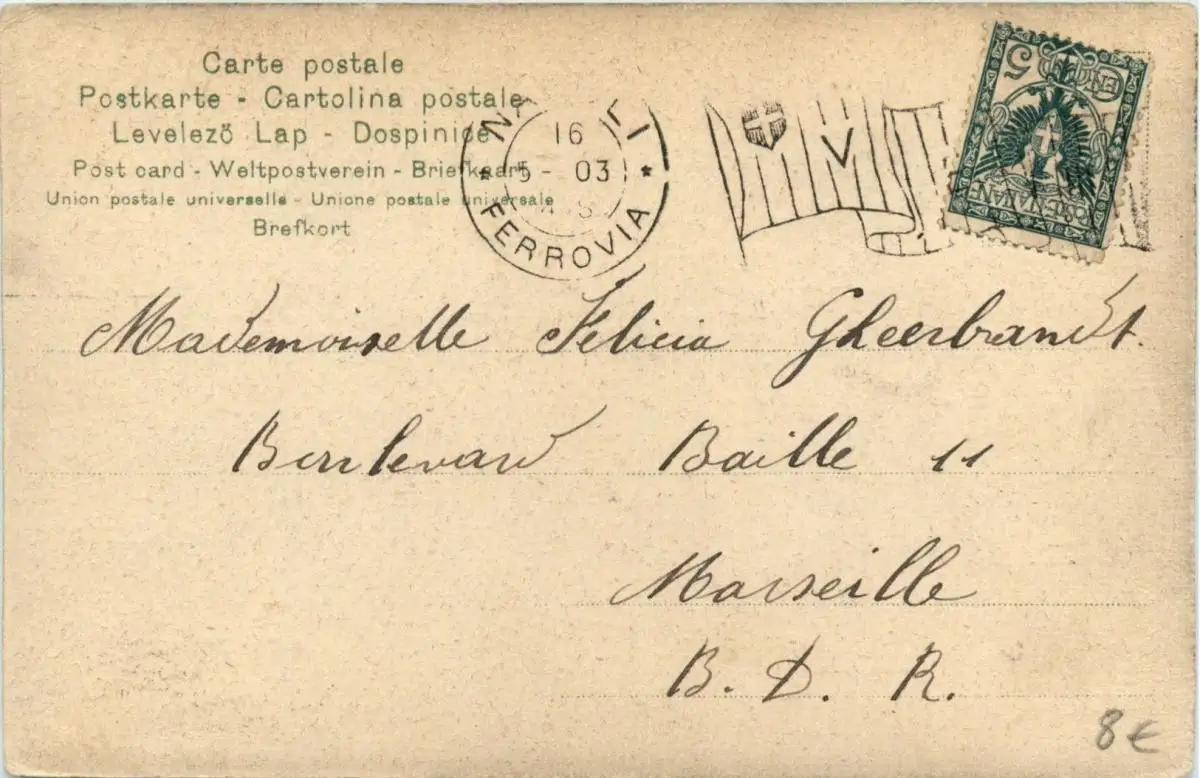 Carte postale
Postkarte - Cartolina postale
Levelező Lap - Dospinice
Post card - Weltpostverein - Briefkaart -
Union postale universelle - Unione postale universale
Brefkort
16
5 03
FERROVIA
V
5
Mademoiselle Felicia Gheerbrandt.
Boulevard Baille 11
Marseille
B. D. R.
8€